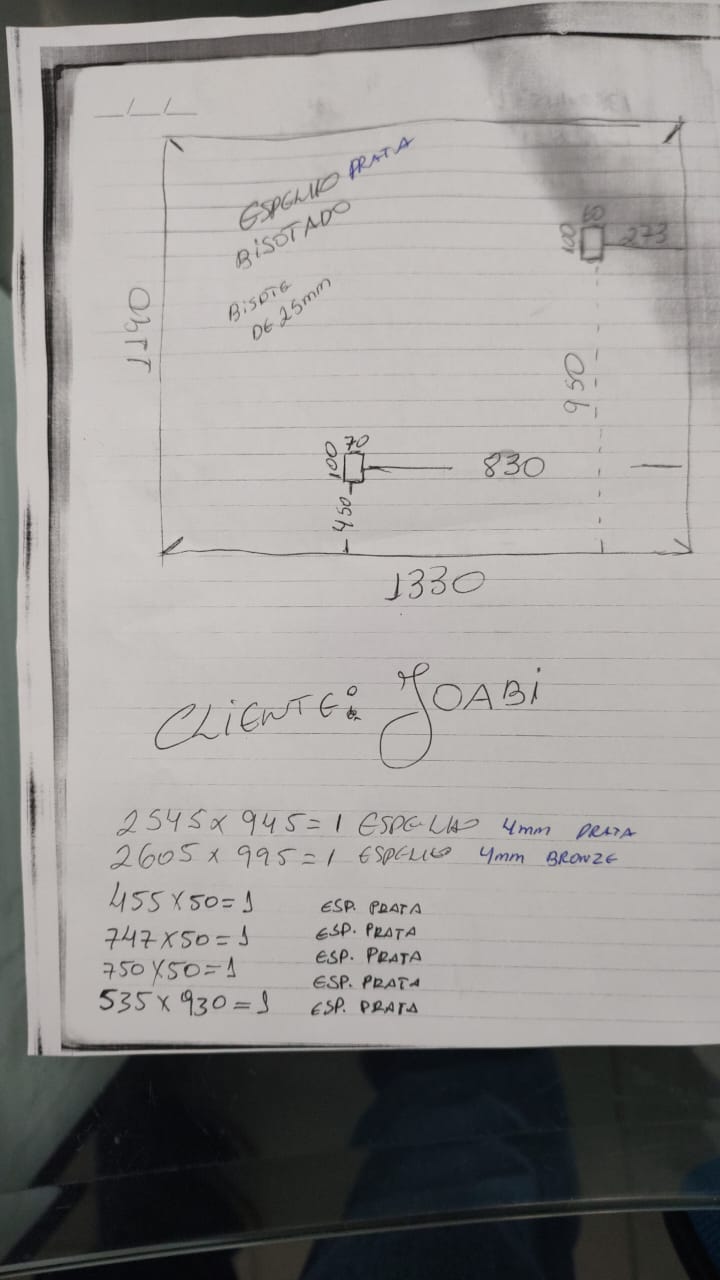 ESPELHO PRATA
BISOTADO
BISOTE
DE 25mm
60
100
273
1140
950
70
100
830
450
1330
CLIENTE: JOABI
2545 x 945 = 1 ESPELHO 4mm PRATA
2605 x 995 = 1 ESPELHO 4mm BRONZE
455 X 50 = 1 ESP. PRATA
747 X 50 = 1 ESP. PRATA
ESP. PRATA
750 X 50 = 1 ESP. PRATA
535 x 930 = 1 ESP. PRATA